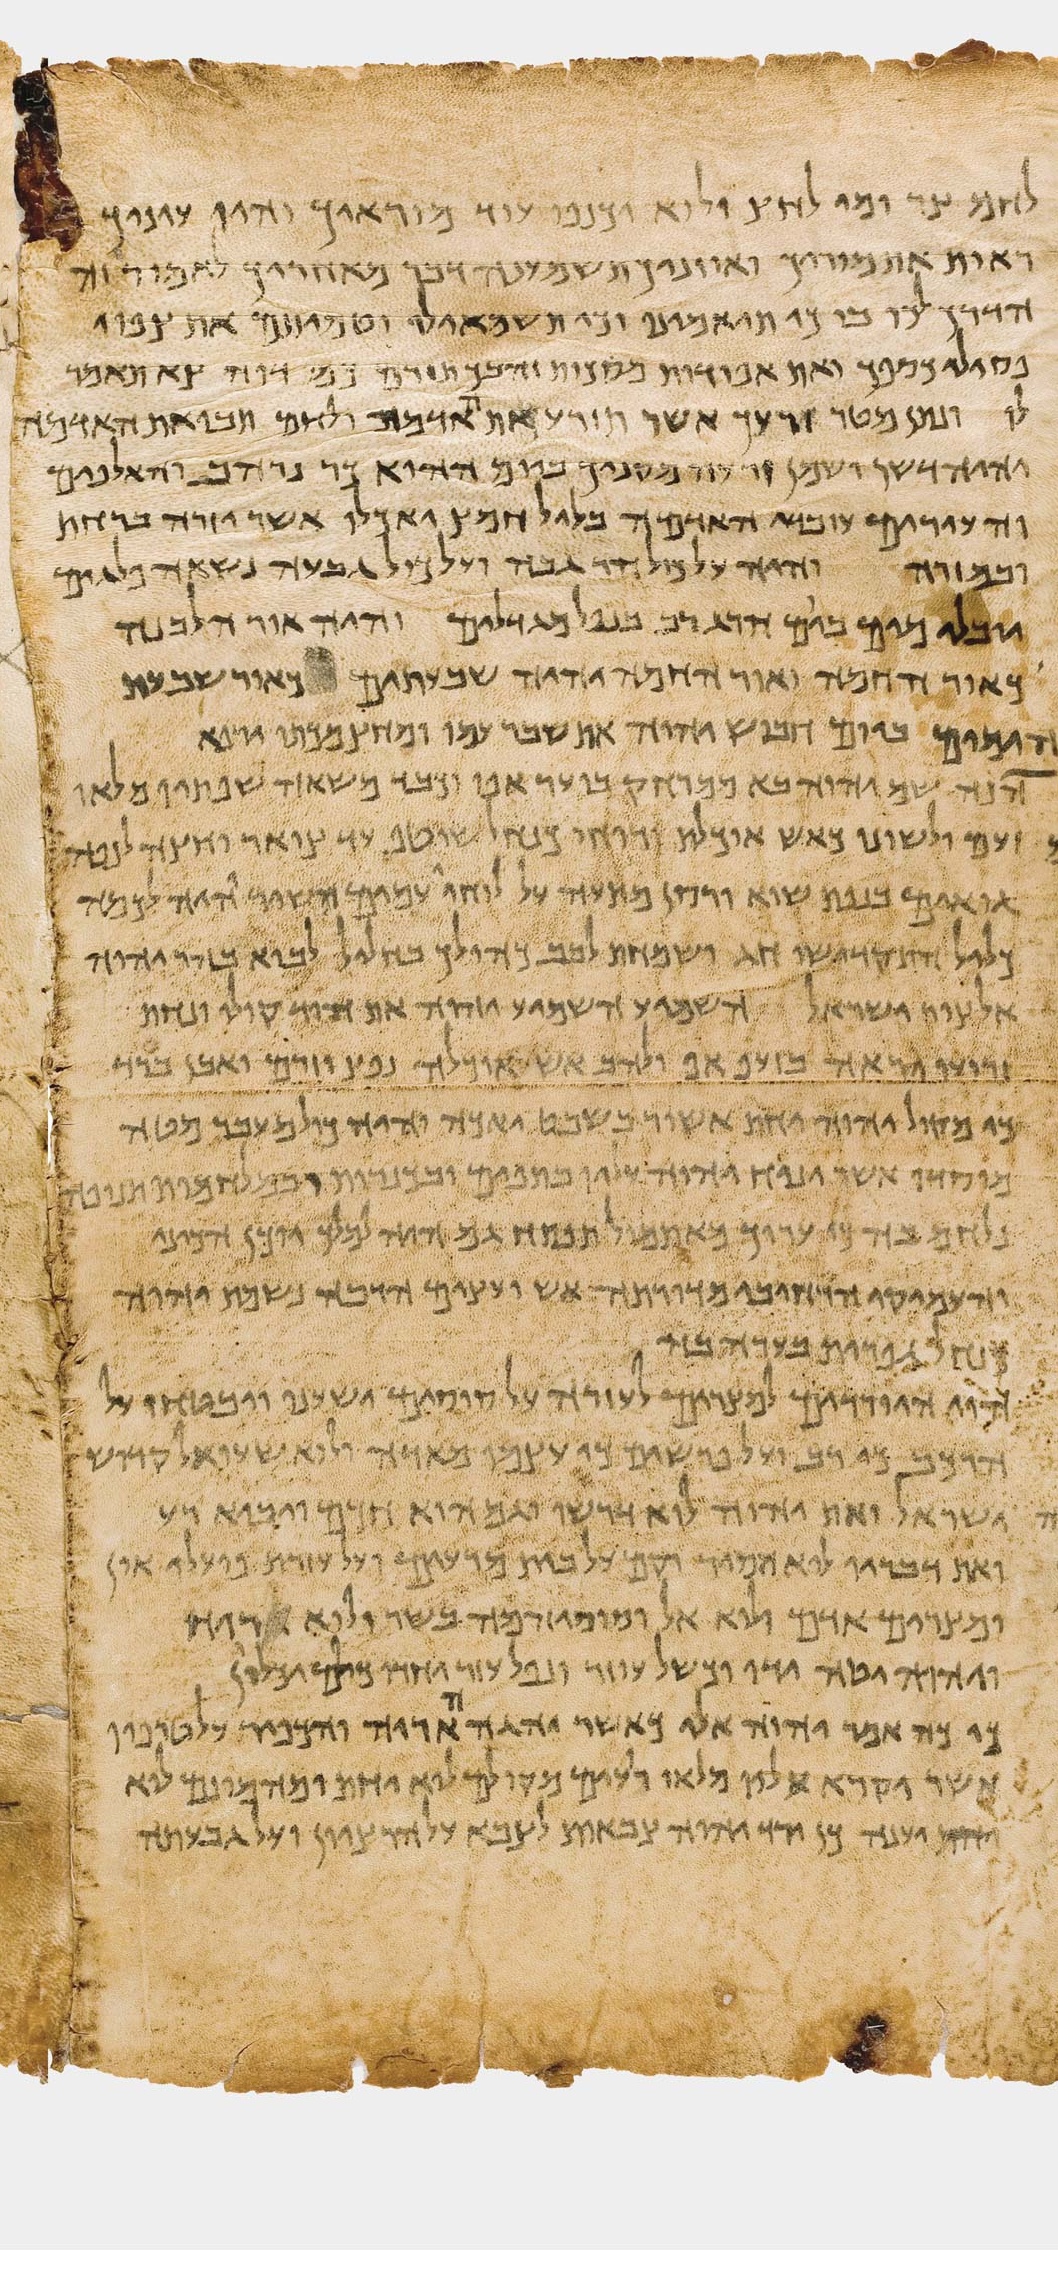 לחם צר ומי לחץ ולוא יכנפו עוד מוראיך והיו עיניך
ראות את מוריך ואוזניך תשמענה דבר מאחריך לאמור זה
הדרך לכו בו כי תיאמינו וכי תשמאילו וטמיתם את צפוי
פסילי כספך ואת אפודת מסכת זהבך תזרם כמי דוה צא תאמר
לו ונתן מטר זרעך אשר תזרע את האדמה ולחם תבואת האדמה
והיה דשן ושמן ורעה מקניך ביום ההוא כר נרחב והאלפים
והעירים עובדי האדמה בליל חמיץ יואכלו אשר יזרה ברחת
ובמזרה והיה על כול הר גבה ועל כול גבעה נשאה פלגים
יובלי מים ביום הרג רב בנפל מגדלים והיה אור הלבנה
כאור החמה ואור החמה יהיה שבעתים כאור שבעת
הימים ביום חבוש יהוה את שבר עמו ומחץ מכתו ירפא
הנה שם יהוה בא ממרחק בוער אפו וכבד משאה שפתיו מלאו
זעם ולשונו כאש אוכלת ורוחו כנחל שוטף עד צואר יחצה לנפה
גואים בנפת שוא ורסן מתעה על לוחי עמים השיר יהיה לכמה
כליל התקדש חג ושמחת לבב כהולך בחליל לבוא בהר יהוה
אל צור ישראל השמיע השמיע יהוה את הוד קולו ונחת
זרועו יראה בזעף אף ולהב אש אוכלה נפץ וזרם ואבן ברד
כי מקול יהוה יחת אשור בשבט יאכה והיה כול מעבר מטה
מוסדו אשר יניח יהוה עליו בתפים ובכנרות ובמלחמות תנופה
נלחם בה כי ערוך מאתמול תפתה גם היה למלך יוכן הכינו
והעמיקו הרחיבו מדורתה אש ועצים הרבה נשמת יהוה
כנחל גפרית בערה בה
הוי היורדים למצרים לעזרה על סוסים ישענו ויבטחו על
הרכב כי רב ועל פרשים כי עצמו מאדה ולוא שעו על קדוש
ישראל ואת יהוה לוא דרשו וגם הוא חכם ויביא רע
ואת דבריו לוא הסיר וקם על בית מרעים ועל עזרת פועלי און
ומצרים אדם ולוא אל וסוסיהמה בשר ולוא רוח
ויהוה יטה ידו וכשל עוזר ונפל עזר יחדו כולם יכליון
כי כה אמר יהוה אלי כאשר יהגה האריה והכפיר על טרפו
אשר יקרא עליו מלאו רעים מקולם לוא יחת ומהמונם לוא
יענה כן ירד יהוה צבאות לצבא על הר ציון ועל גבעתה